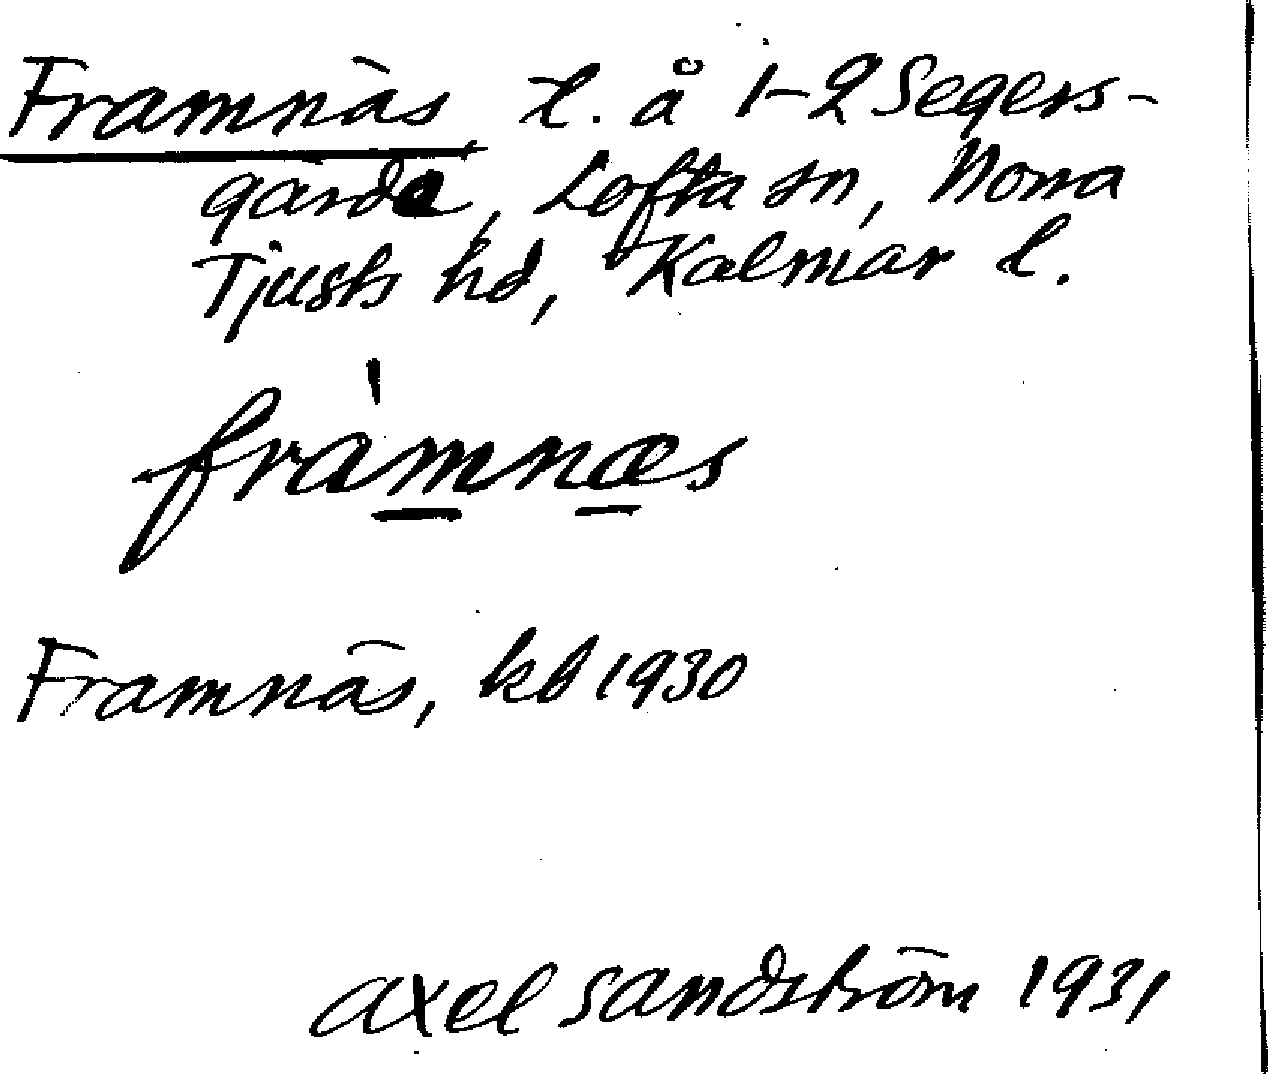 Framnäs, l. å 1-2 Segers-
gärde, Lofta sn, Norra
Tjusts hd, Kalmar l.
fràmnæs
Framnäs, kb 1930
Axel Sandström 1931